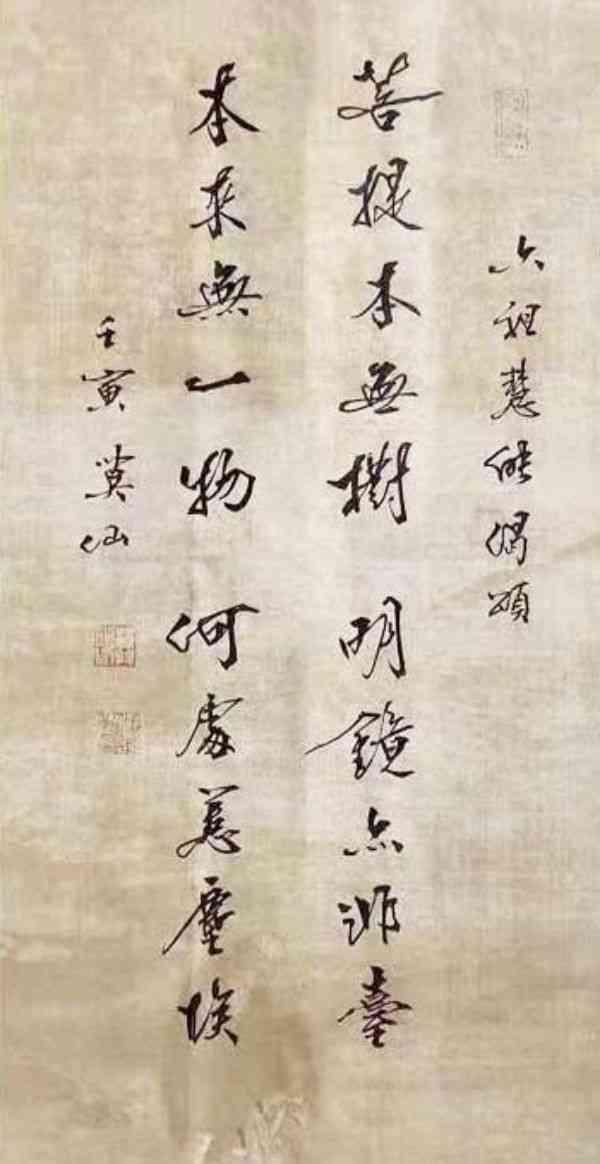 六祖慧能偈頌
菩提本無樹 明鏡亦非臺
本來無一物 何處惹塵埃
壬寅 莫仙